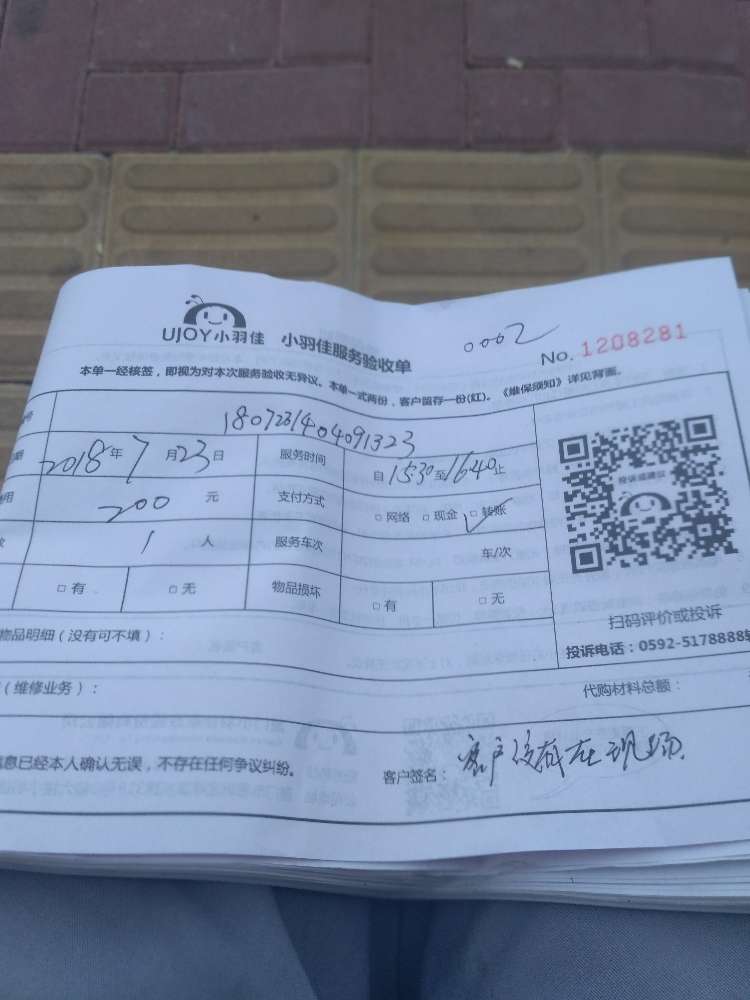 UJOY小羽佳 小羽佳服务验收单 0002 No. 1208281
本单一经核签，即视为对本次服务验收无异议。本单一式两份，客户留存一份(红)。《维保须知》详见背面。
号 1807231404091323
期 2018年7月23日 服务时间 自15:30至16:40止
用 200 元 支付方式 □网络 □现金 □转账
数 1 人 服务车次 车/次
□有 □无 物品损坏 □有 □无
投诉或建议
扫码评价或投诉
投诉电话：0592-5178888转
物品明细（没有可不填）：
（维修业务）： 代购材料总额：
信息已经本人确认无误，不存在任何争议纠纷。 客户签名：客户没有在现场